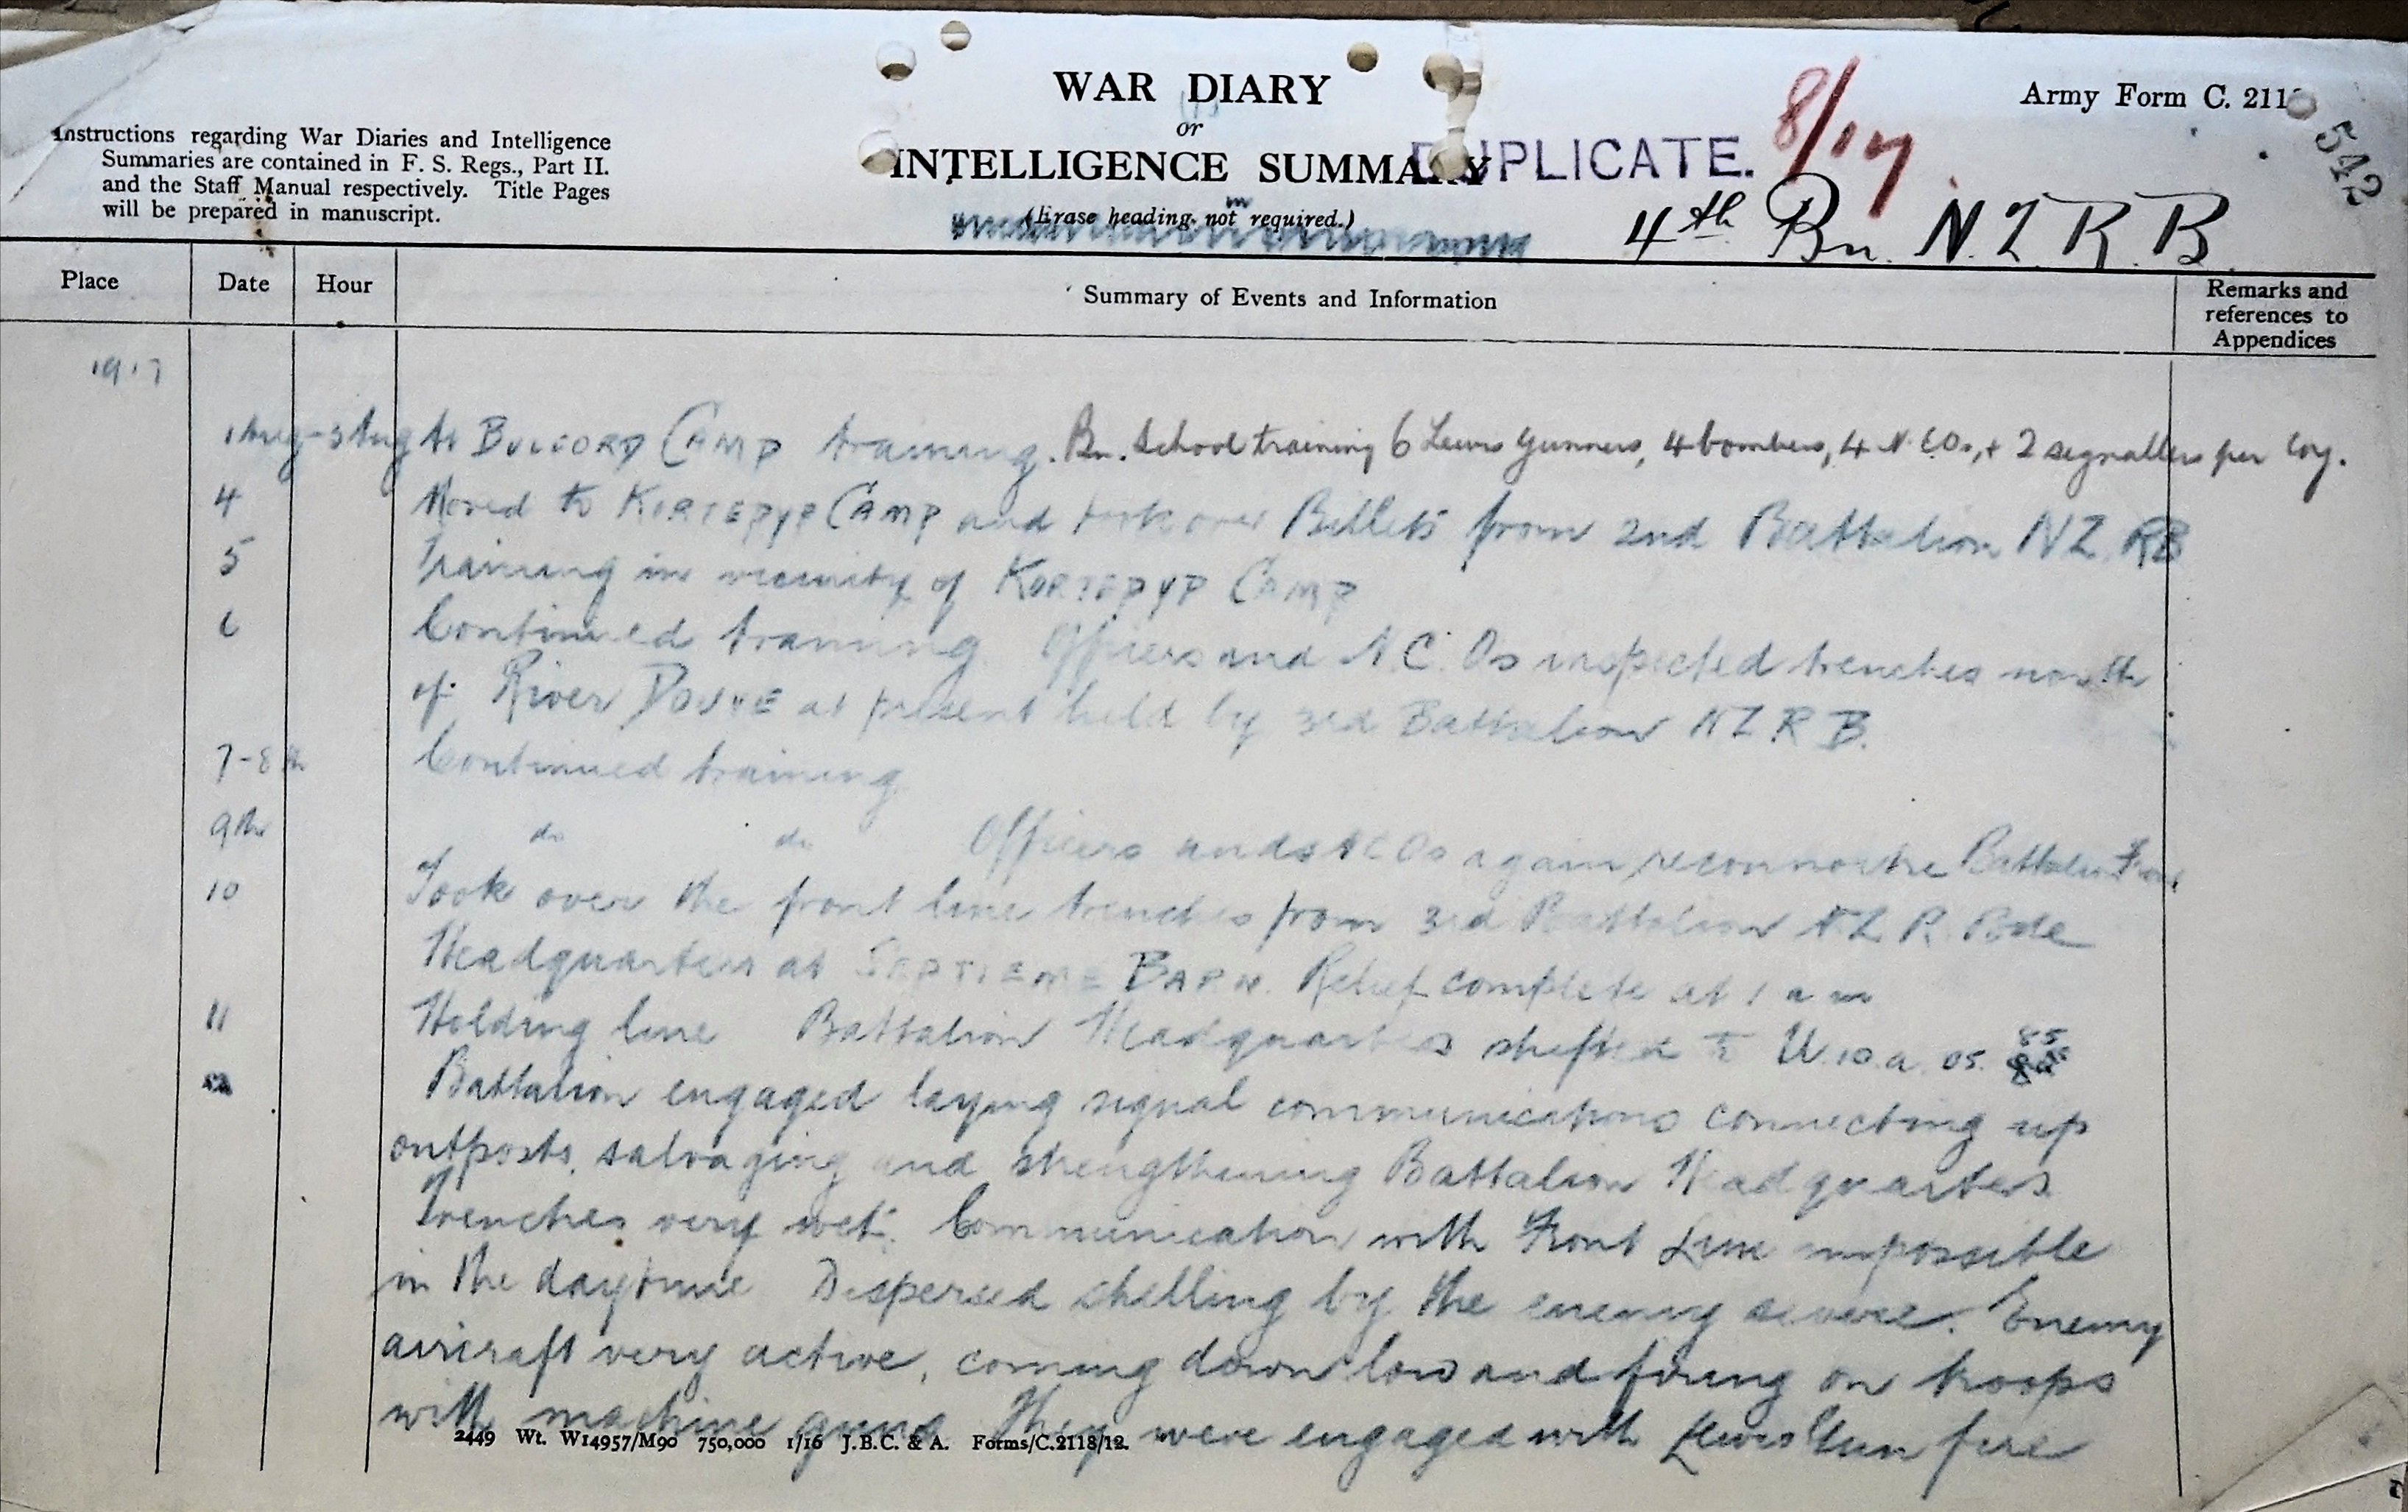 WAR DIARY
or
INTELLIGENCE SUMMARY
(Erase heading not required.)
Instructions regarding War Diaries and Intelligence
Summaries are contained in F. S. Regs., Part II.
and the Staff Manual respectively. Title Pages
will be prepared in manuscript.
DUPLICATE.
8/17
Army Form C. 211
542
4th Bn. N.Z.R.B.
Place Date Hour Summary of Events and Information Remarks and
references to
Appendices
1917
1 Aug-3 Aug At BULFORD CAMP training. Bn. School training 6 Lewis Gunners, 4 bombers, 4 N.COs, + 2 signallers per Coy.
4 Moved to KORTEPYP CAMP and took over Billets from 2nd Battalion NZ RB
5 Training in vicinity of KORTEPYP CAMP
6 Continued training. Officers and N.C.Os inspected trenches north
of River DOUVE at present held by 3rd Battalion NZRB.
7-8th Continued training
9th do do Officers and NCOs again reconnoitre Battalion Front
10 Took over the front line trenches from 3rd Battalion NZ R. Bde
Headquarters at SEPTIEME BARN. Relief complete at 1 am
11 Holding line Battalion Headquarters shifted to U.10.a.05.85
Battalion engaged laying signal communications connecting up
outposts, salvaging and strengthening Battalion Headquarters
Trenches very wet. Communication with Front Line impossible
in the daytime Dispersed shelling by the enemy severe. Enemy
aircraft very active, coming down low and firing on troops
with machine guns. They were engaged with Lewis Gun fire
2449 Wt. W14957/M90 750,000 1/16 J.B.C. & A. Forms/C.2118/12.